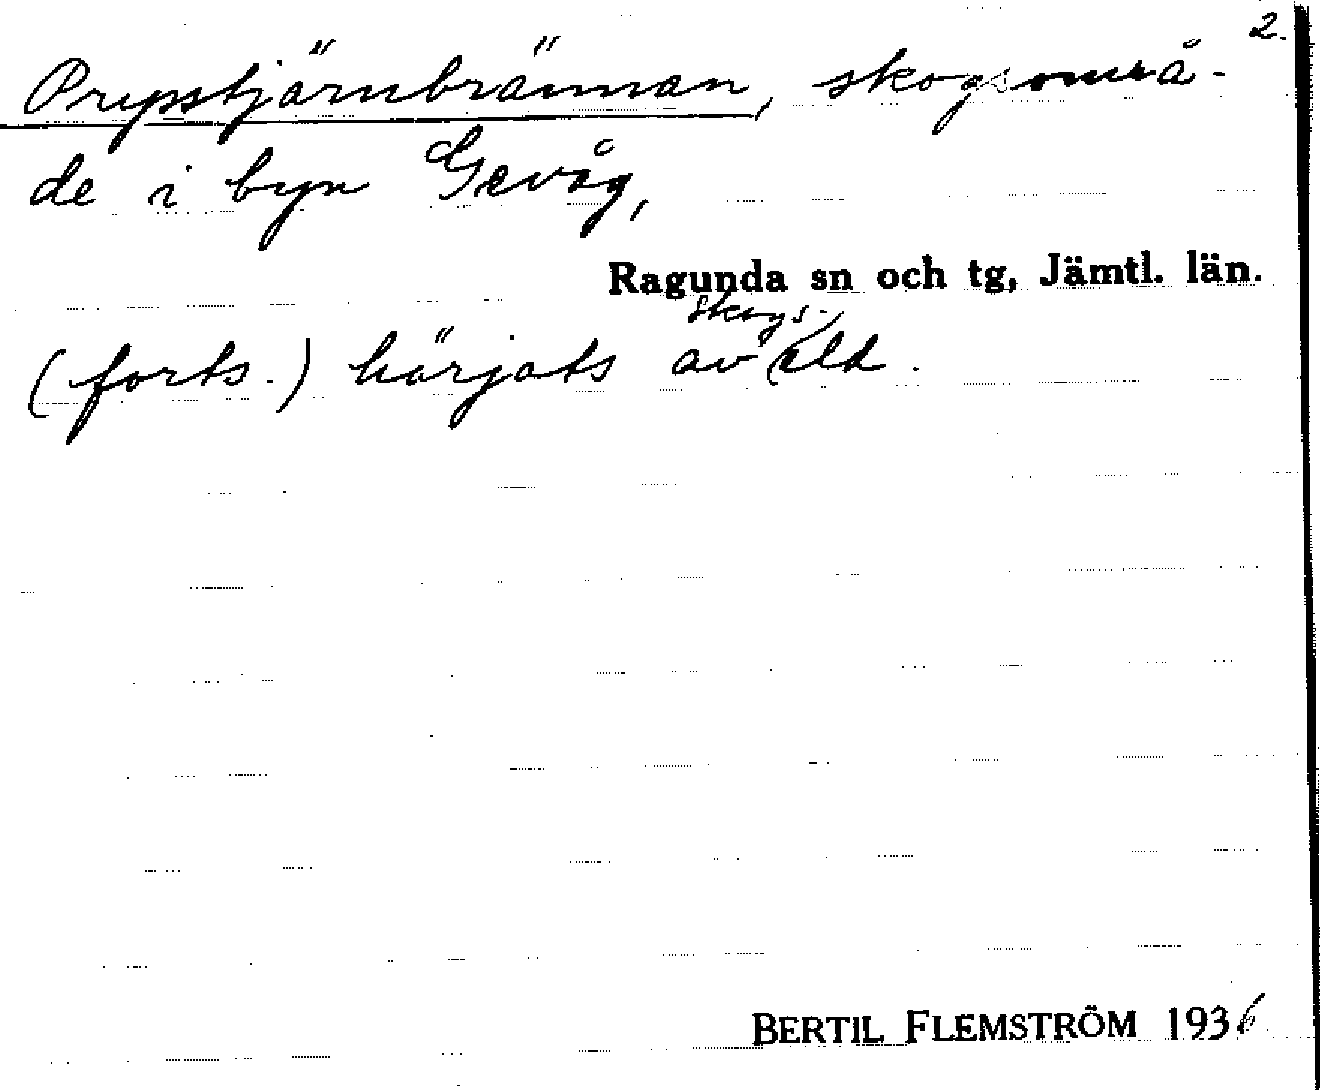 2.
Prypstjärnbrännan, skogsområ-
de i byn Gevåg,
Ragunda sn och tg, Jämtl. län.
skogs-
(forts.) härjats av eld.
BERTIL FLEMSTRÖM 1936